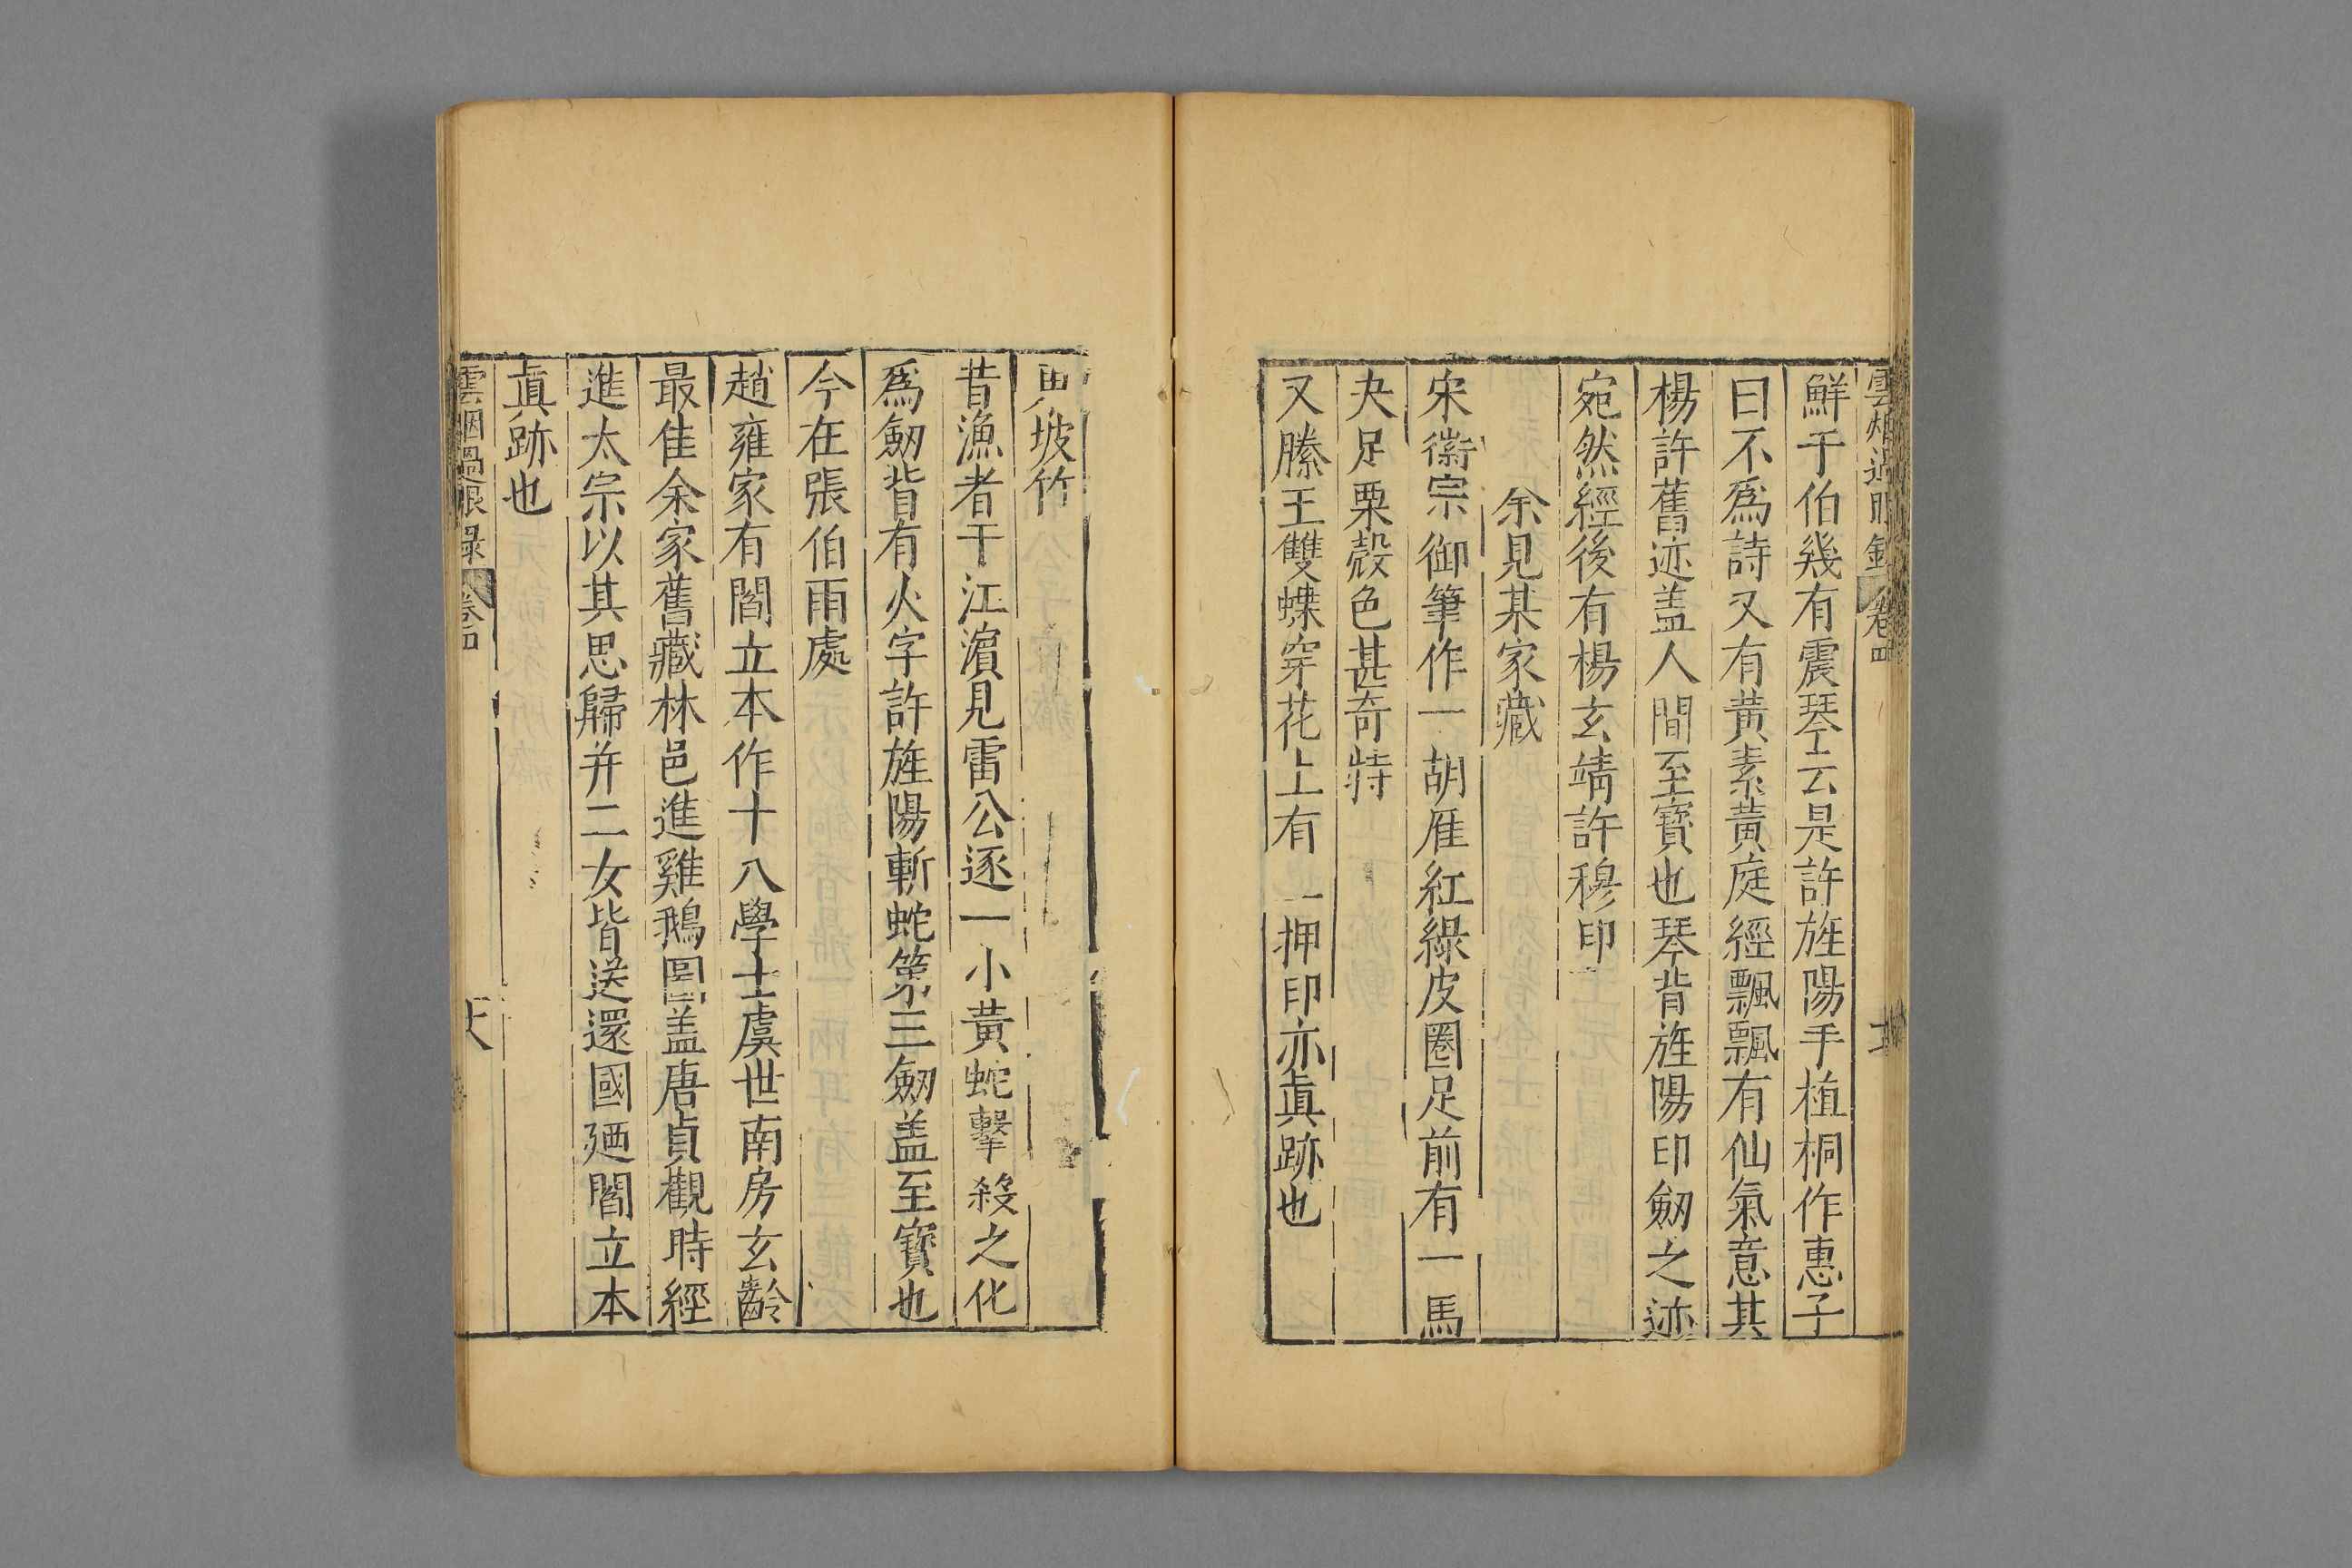 鮮于伯幾有震琴云是許旌陽手植桐作惠子
曰不爲詩又有黃素黃庭經飄飄有仙氣意其
楊許舊迹盖人間至寳也琴背旌陽印劒之迹
宛然經後有楊玄靖許穆印
余見某家藏
宋徽宗御筆作一胡雁紅綠皮圈足前有一馬
夬足栗殼色甚奇特
又滕王雙蝶穿花上有一押印亦眞跡也
坡竹
昔漁者干江濵見雷公逐一小黃蛇擊殺之化
爲劒背有火字許旌陽斬蛇第三劒盖至寳也
今在張伯雨處
趙雍家有閻立本作十八學士虞世南房玄齡
最佳余家舊藏林邑進雞鵝圖盖唐貞觀時經
進太宗以其思歸并二女皆送還國廼閻立本
眞跡也
雲烟過眼錄 卷四